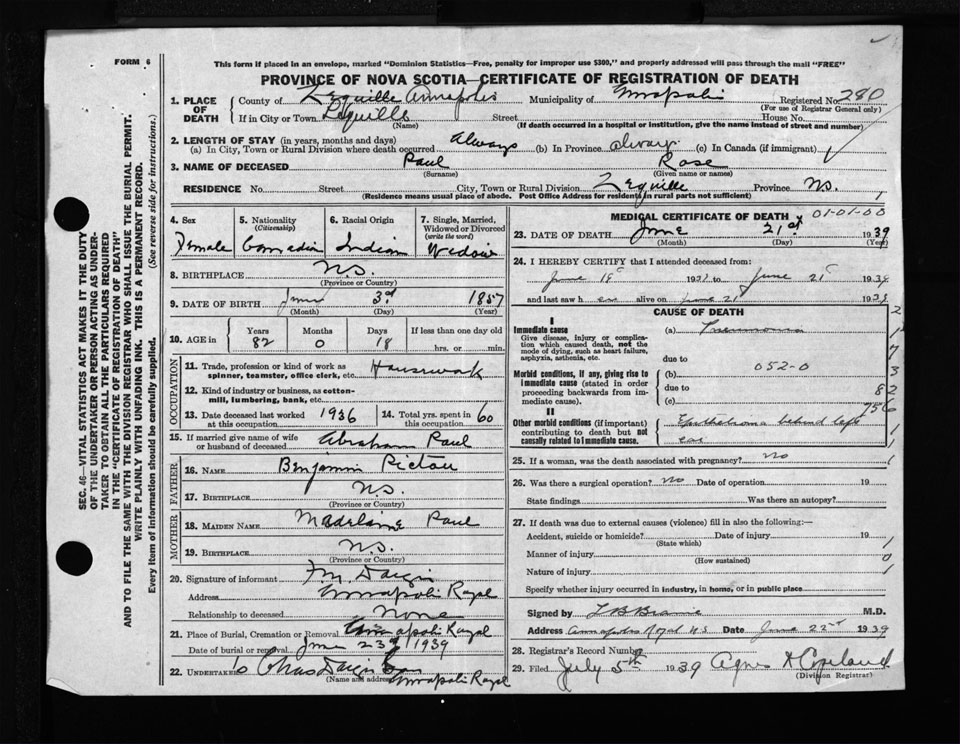 FORM 6
This form if placed in an envelope, marked "Dominion Statistics—Free, penalty for improper use $300," and properly addressed will pass through the mail "FREE"
PROVINCE OF NOVA SCOTIA—CERTIFICATE OF REGISTRATION OF DEATH
1. PLACE OF DEATH County of Lequille Annapolis Municipality of Annapolis Registered No. 280
(For use of Registrar General only)
If in City or Town Lequille Street House No.
(Name) (If death occurred in a hospital or institution, give the name instead of street and number)
2. LENGTH OF STAY (in years, months and days)
(a) In City, Town or Rural Division where death occurred Always (b) In Province always (c) In Canada (if immigrant)
3. NAME OF DECEASED Paul Rose
(Surname) (Given name or names)
RESIDENCE No. Street City, Town or Rural Division Lequille Province N.S. 1
(Residence means usual place of abode. Post Office Address for residents in rural parts not sufficient)
4. Sex Female
5. Nationality (Citizenship) Canadian
6. Racial Origin Indian
7. Single, Married, Widowed or Divorced (write the word) Widow
8. BIRTHPLACE N.S.
(Province or Country)
9. DATE OF BIRTH June 3rd 1857
(Month) (Day) (Year)
10. AGE in Years 82 Months 0 Days 18 If less than one day old hrs. or min.
OCCUPATION
11. Trade, profession or kind of work as spinner, teamster, office clerk, etc. Housework
12. Kind of industry or business, as cotton-mill, lumbering, bank, etc.
13. Date deceased last worked at this occupation 1936
14. Total yrs. spent in this occupation 60
15. If married give name of wife or husband of deceased Abraham Paul
FATHER
16. NAME Benjamin Pictou
17. BIRTHPLACE N.S.
(Province or Country)
MOTHER
18. MAIDEN NAME Madelaine Paul
19. BIRTHPLACE N.S.
(Province or Country)
20. Signature of informant
Address Annapolis Royal
Relationship to deceased None
21. Place of Burial, Cremation or Removal Annapolis Royal
Date of burial or removal June 23rd 1939
22. UNDERTAKER Chas
(Name and address) Annapolis Royal
MEDICAL CERTIFICATE OF DEATH 01-01-00
23. DATE OF DEATH June 21st 1939
(Month) (Day) (Year)
24. I HEREBY CERTIFY that I attended deceased from:
June 18 1939 to June 21 1939
and last saw her alive on June 21 1939
CAUSE OF DEATH
I
Immediate cause (a) Pneumonia
Give disease, injury or complication which caused death, not the mode of dying, such as heart failure, asphyxia, asthenia, etc.
due to
Morbid conditions, if any, giving rise to immediate cause (stated in order proceeding backwards from immediate cause).
(b) 052-0
due to
(c)
II
Other morbid conditions (if important) contributing to death but not causally related to immediate cause.
Epithelioma behind left ear
25. If a woman, was the death associated with pregnancy? No
26. Was there a surgical operation? No Date of operation 19
State findings Was there an autopsy?
27. If death was due to external causes (violence) fill in also the following:—
Accident, suicide or homicide? Date of injury 19
(State which)
Manner of injury
(How sustained)
Nature of injury
Specify whether injury occurred in industry, in home, or in public place
Signed by L B M.D.
Address Annapolis Royal N.S Date June 22nd 1939
28. Registrar's Record Number
29. Filed July 5th 1939 Agnes H Copeland
(Division Registrar)
SEC. 46—VITAL STATISTICS ACT MAKES IT THE DUTY
OF THE UNDERTAKER OR PERSON ACTING AS UNDER-
TAKER TO OBTAIN ALL THE PARTICULARS REQUIRED
IN THE "CERTIFICATE OF REGISTRATION OF DEATH"
AND TO FILE THE SAME WITH THE DIVISION REGISTRAR WHO SHALL ISSUE THE BURIAL PERMIT.
WRITE PLAINLY WITH UNFADING INK. THIS IS A PERMANENT RECORD.
Every item of information should be carefully supplied. (See reverse side for instructions.)